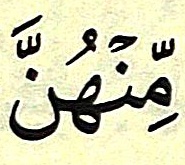 مِّنۡهُنَّ